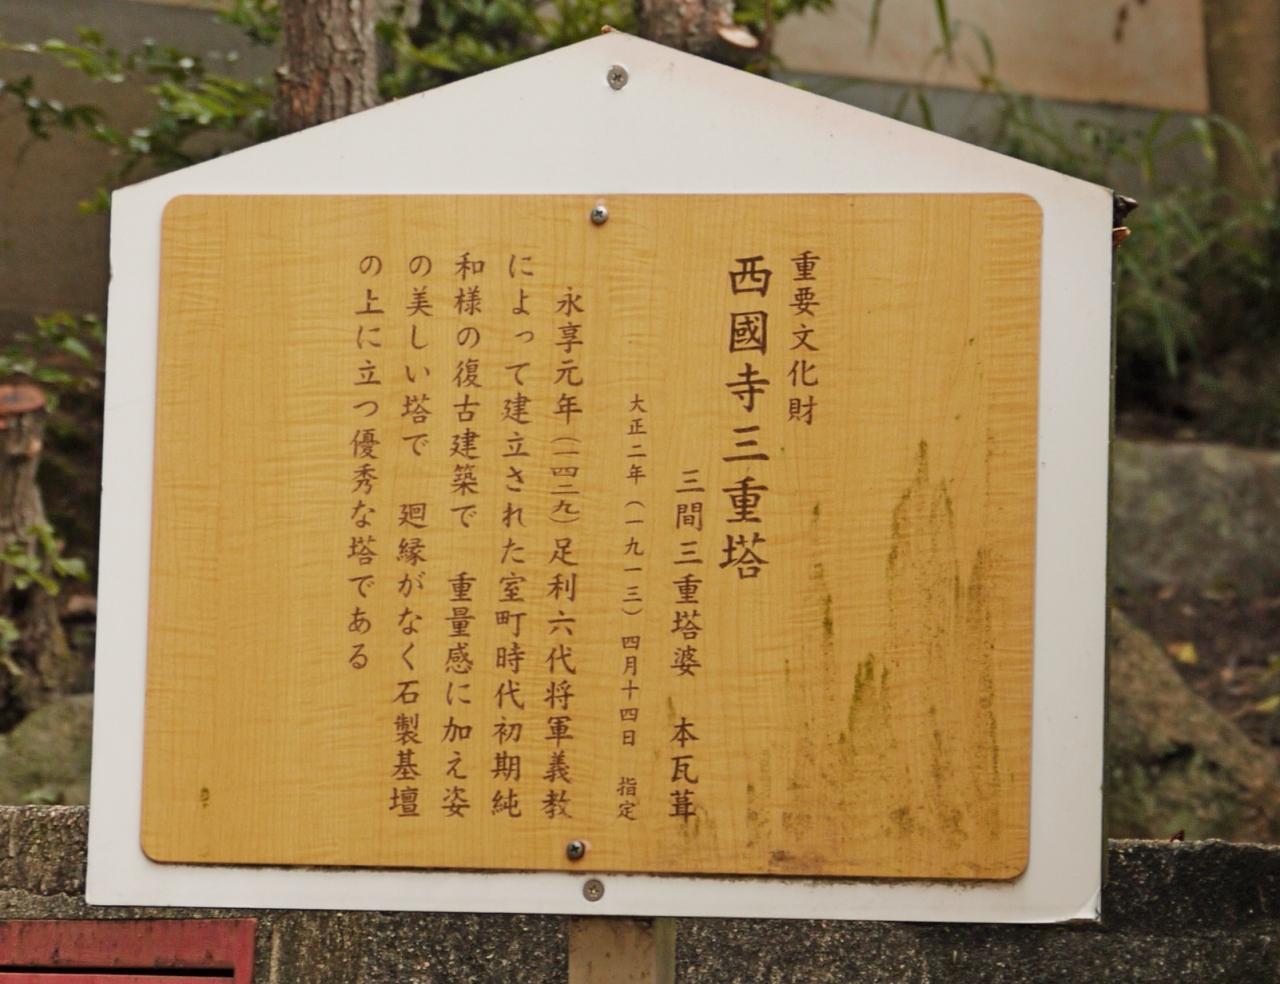 重要文化財
西國寺三重塔
三間三重塔婆　本瓦葺
大正二年（一九一三）四月十四日　指定
永享元年（一四二九）足利六代将軍義教
によって建立された室町時代初期純
和様の復古建築で　重量感に加え姿
の美しい塔で　廻縁がなく石製基壇
の上に立つ優秀な塔である